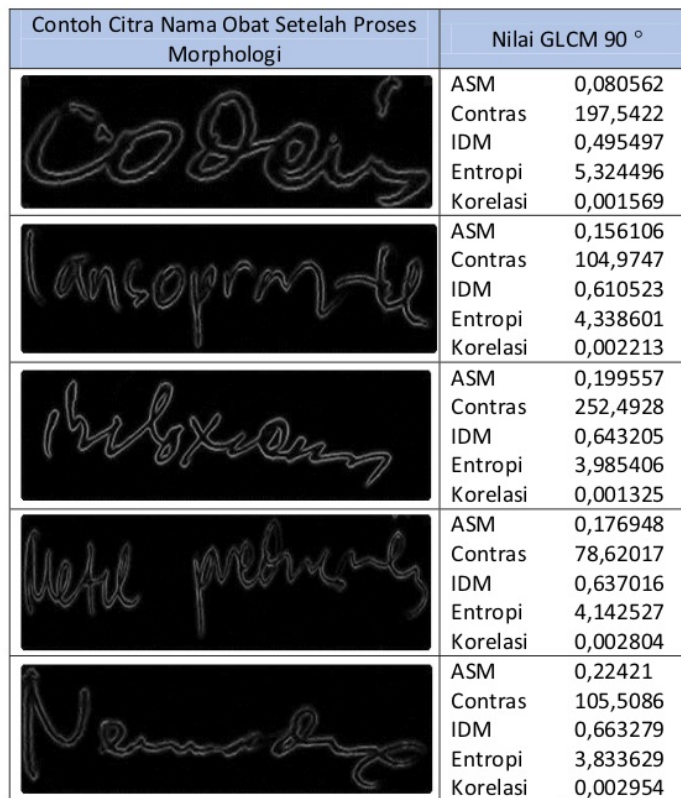 Contoh Citra Nama Obat Setelah Proses
Morphologi
Nilai GLCM 90 °
Codein
ASM 0,080562
Contras 197,5422
IDM 0,495497
Entropi 5,324496
Korelasi 0,001569
ASM 0,156106
Contras 104,9747
IDM 0,610523
Entropi 4,338601
Korelasi 0,002213
ASM 0,199557
Contras 252,4928
IDM 0,643205
Entropi 3,985406
Korelasi 0,001325
Metil
ASM 0,176948
Contras 78,62017
IDM 0,637016
Entropi 4,142527
Korelasi 0,002804
ASM 0,22421
Contras 105,5086
IDM 0,663279
Entropi 3,833629
Korelasi 0,002954